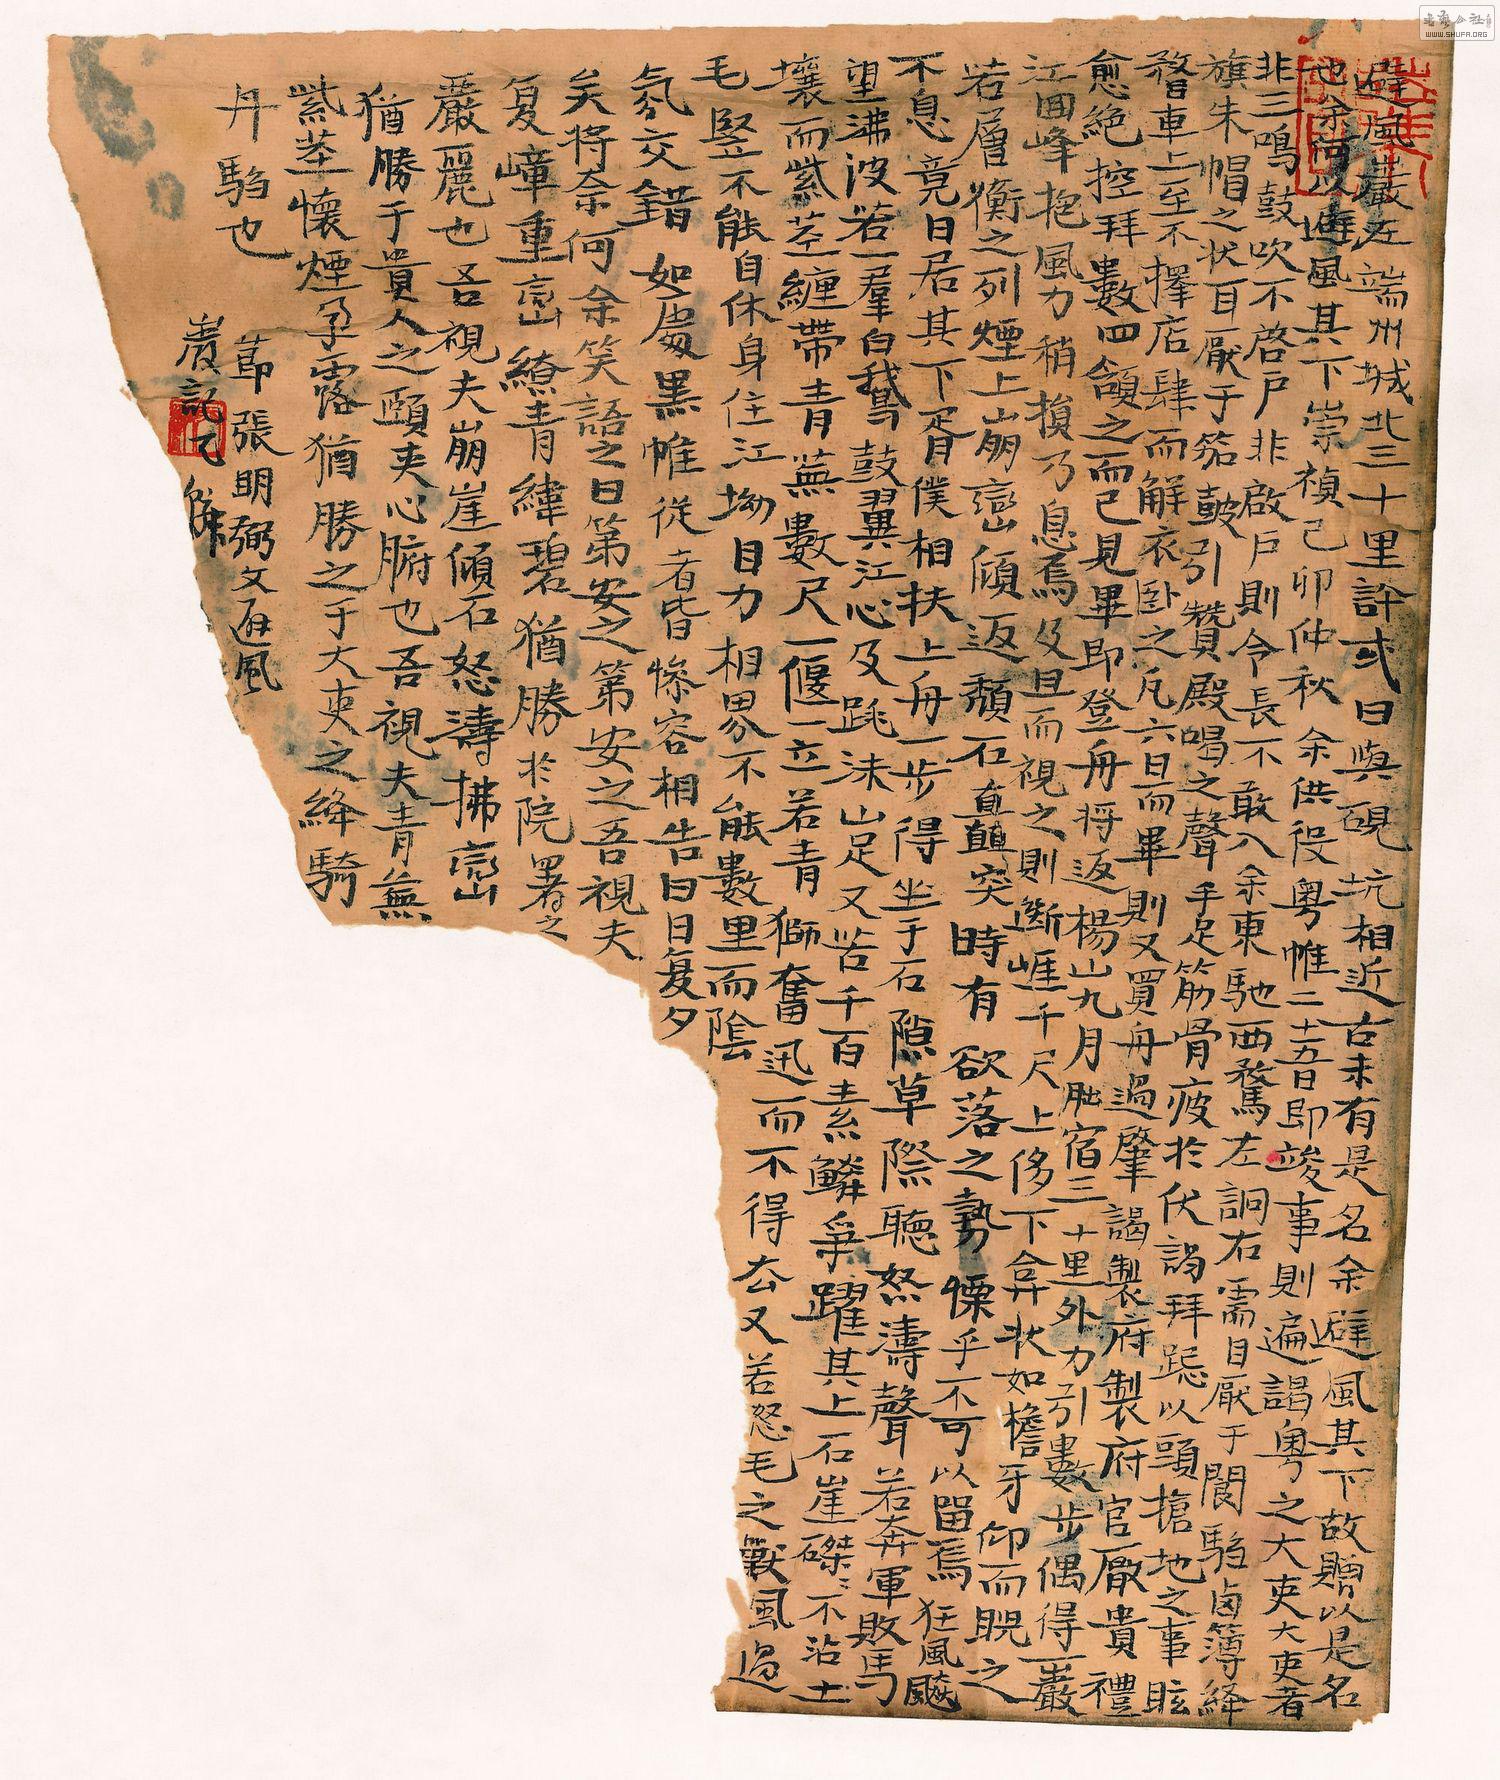 避風巖在端州城北三十里許或曰與硯坑相近古未有是名余避風其下故贈以是名
也余何以避風其下崇禎己卯仲秋余供役粵帷二十五日即竣事則遍謁粵之大吏大吏者
非三鳴鼓吹不啓戶非啟戶則令長不敢入余東馳西騖左詗右需目厭于閽騶鹵簿絳
旗朱帽之狀耳厭于笳鼓引贊殿喝之聲手足筋骨疲於伏謁拜跽以頭搶地之事眩
瞀車上至不擇店肆而解衣臥之凡六日而畢則又買舟過肇謁製府製府官厰貴禮
愈絕控拜數四頷之而已見畢即登舟將返楊山九月朏宿三十里外力引數步偶得一巖
江回峰抱風力稍損乃息焉及旦而視之則斷崕千尺上侈下弇狀如檐牙仰而睨之
若層衡之列煙上崩巒傾返頽石矗突時有欲落之勢慄乎不可以留焉狂風飈
不息竟日居其下胥僕相扶上舟一步得坐于石隙草際聽怒濤聲若奔軍敗馬
望沸波若一羣白鵝鼓翼江心及跳沫山足又若千百素鱗爭躍其上石崖磔磔不沾土
壤而紫莖纏帶青蕪數尺一偃一立若青獅奮迅而不得去又若怒毛之獸風過
毛竪不能自休身住江坳目力相界不能數里而陰
氛交錯如處黑帷從者皆慘容相告曰日復夕
矣將奈何余笑語之曰第安之第安之吾視夫
复嶂重巒繚青緯碧猶勝於院署之
嚴麗也吾視夫崩崖傾石怒濤拂巒
猶勝于貴人之頤夾心腑也吾視夫青蕪
紫莖懷煙孕露猶勝之于大吏之絳騎
丹騶也
節張明弼文避風
巖記